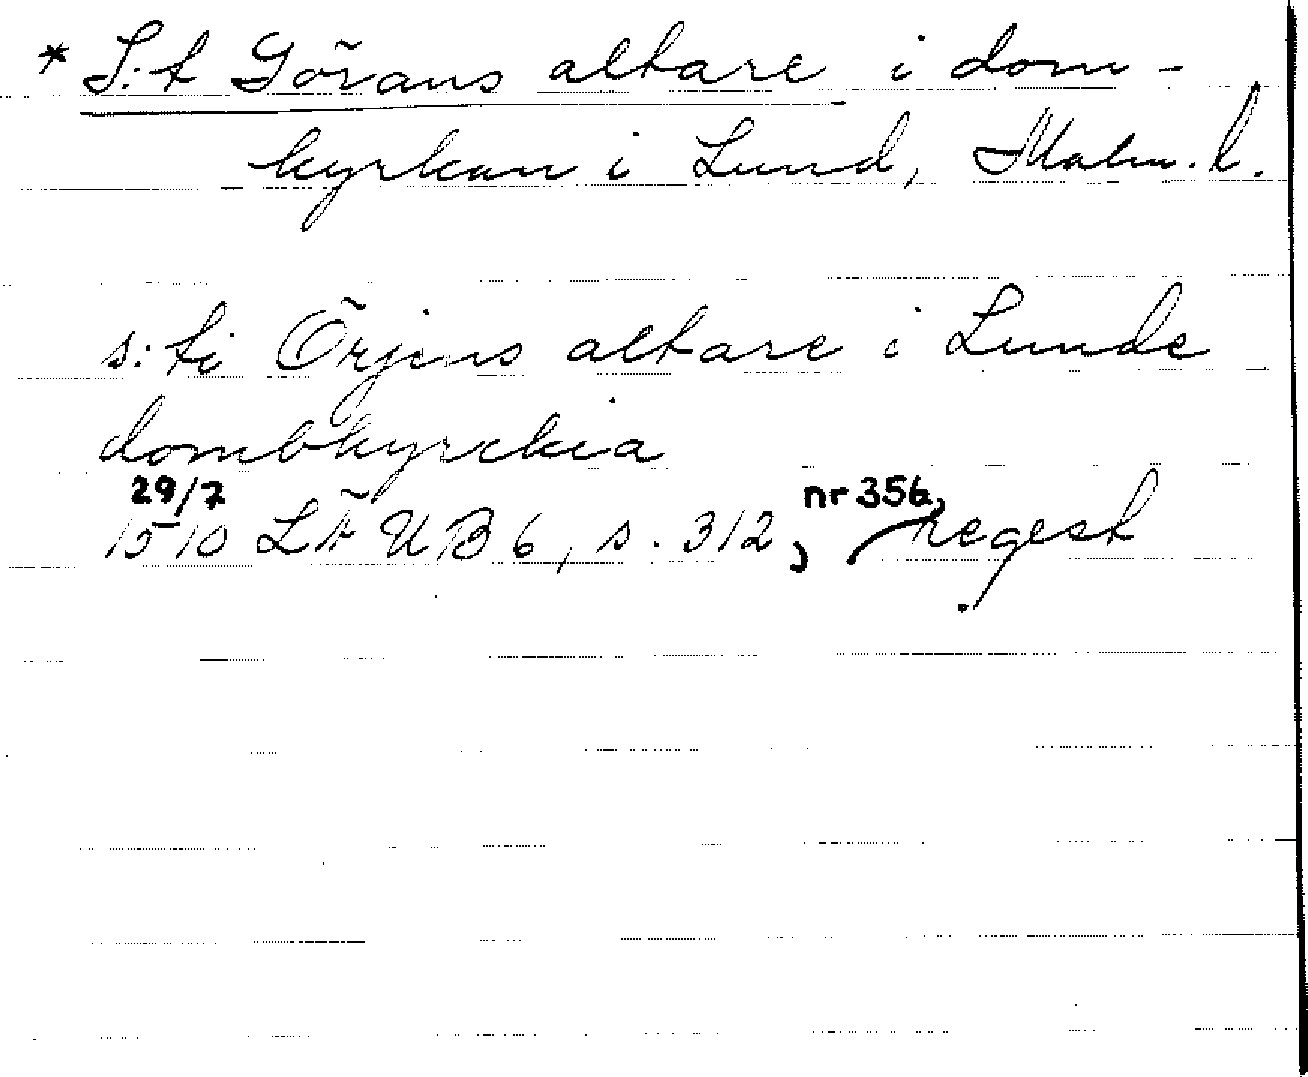 * S:t Görans altare i dom-
kyrkan i Lund, Malm. l.
s:ti Örjens altare i Lunde
dombkyrckia
29/7 nr 356,
1510 LÄUB 6, s. 312, regest